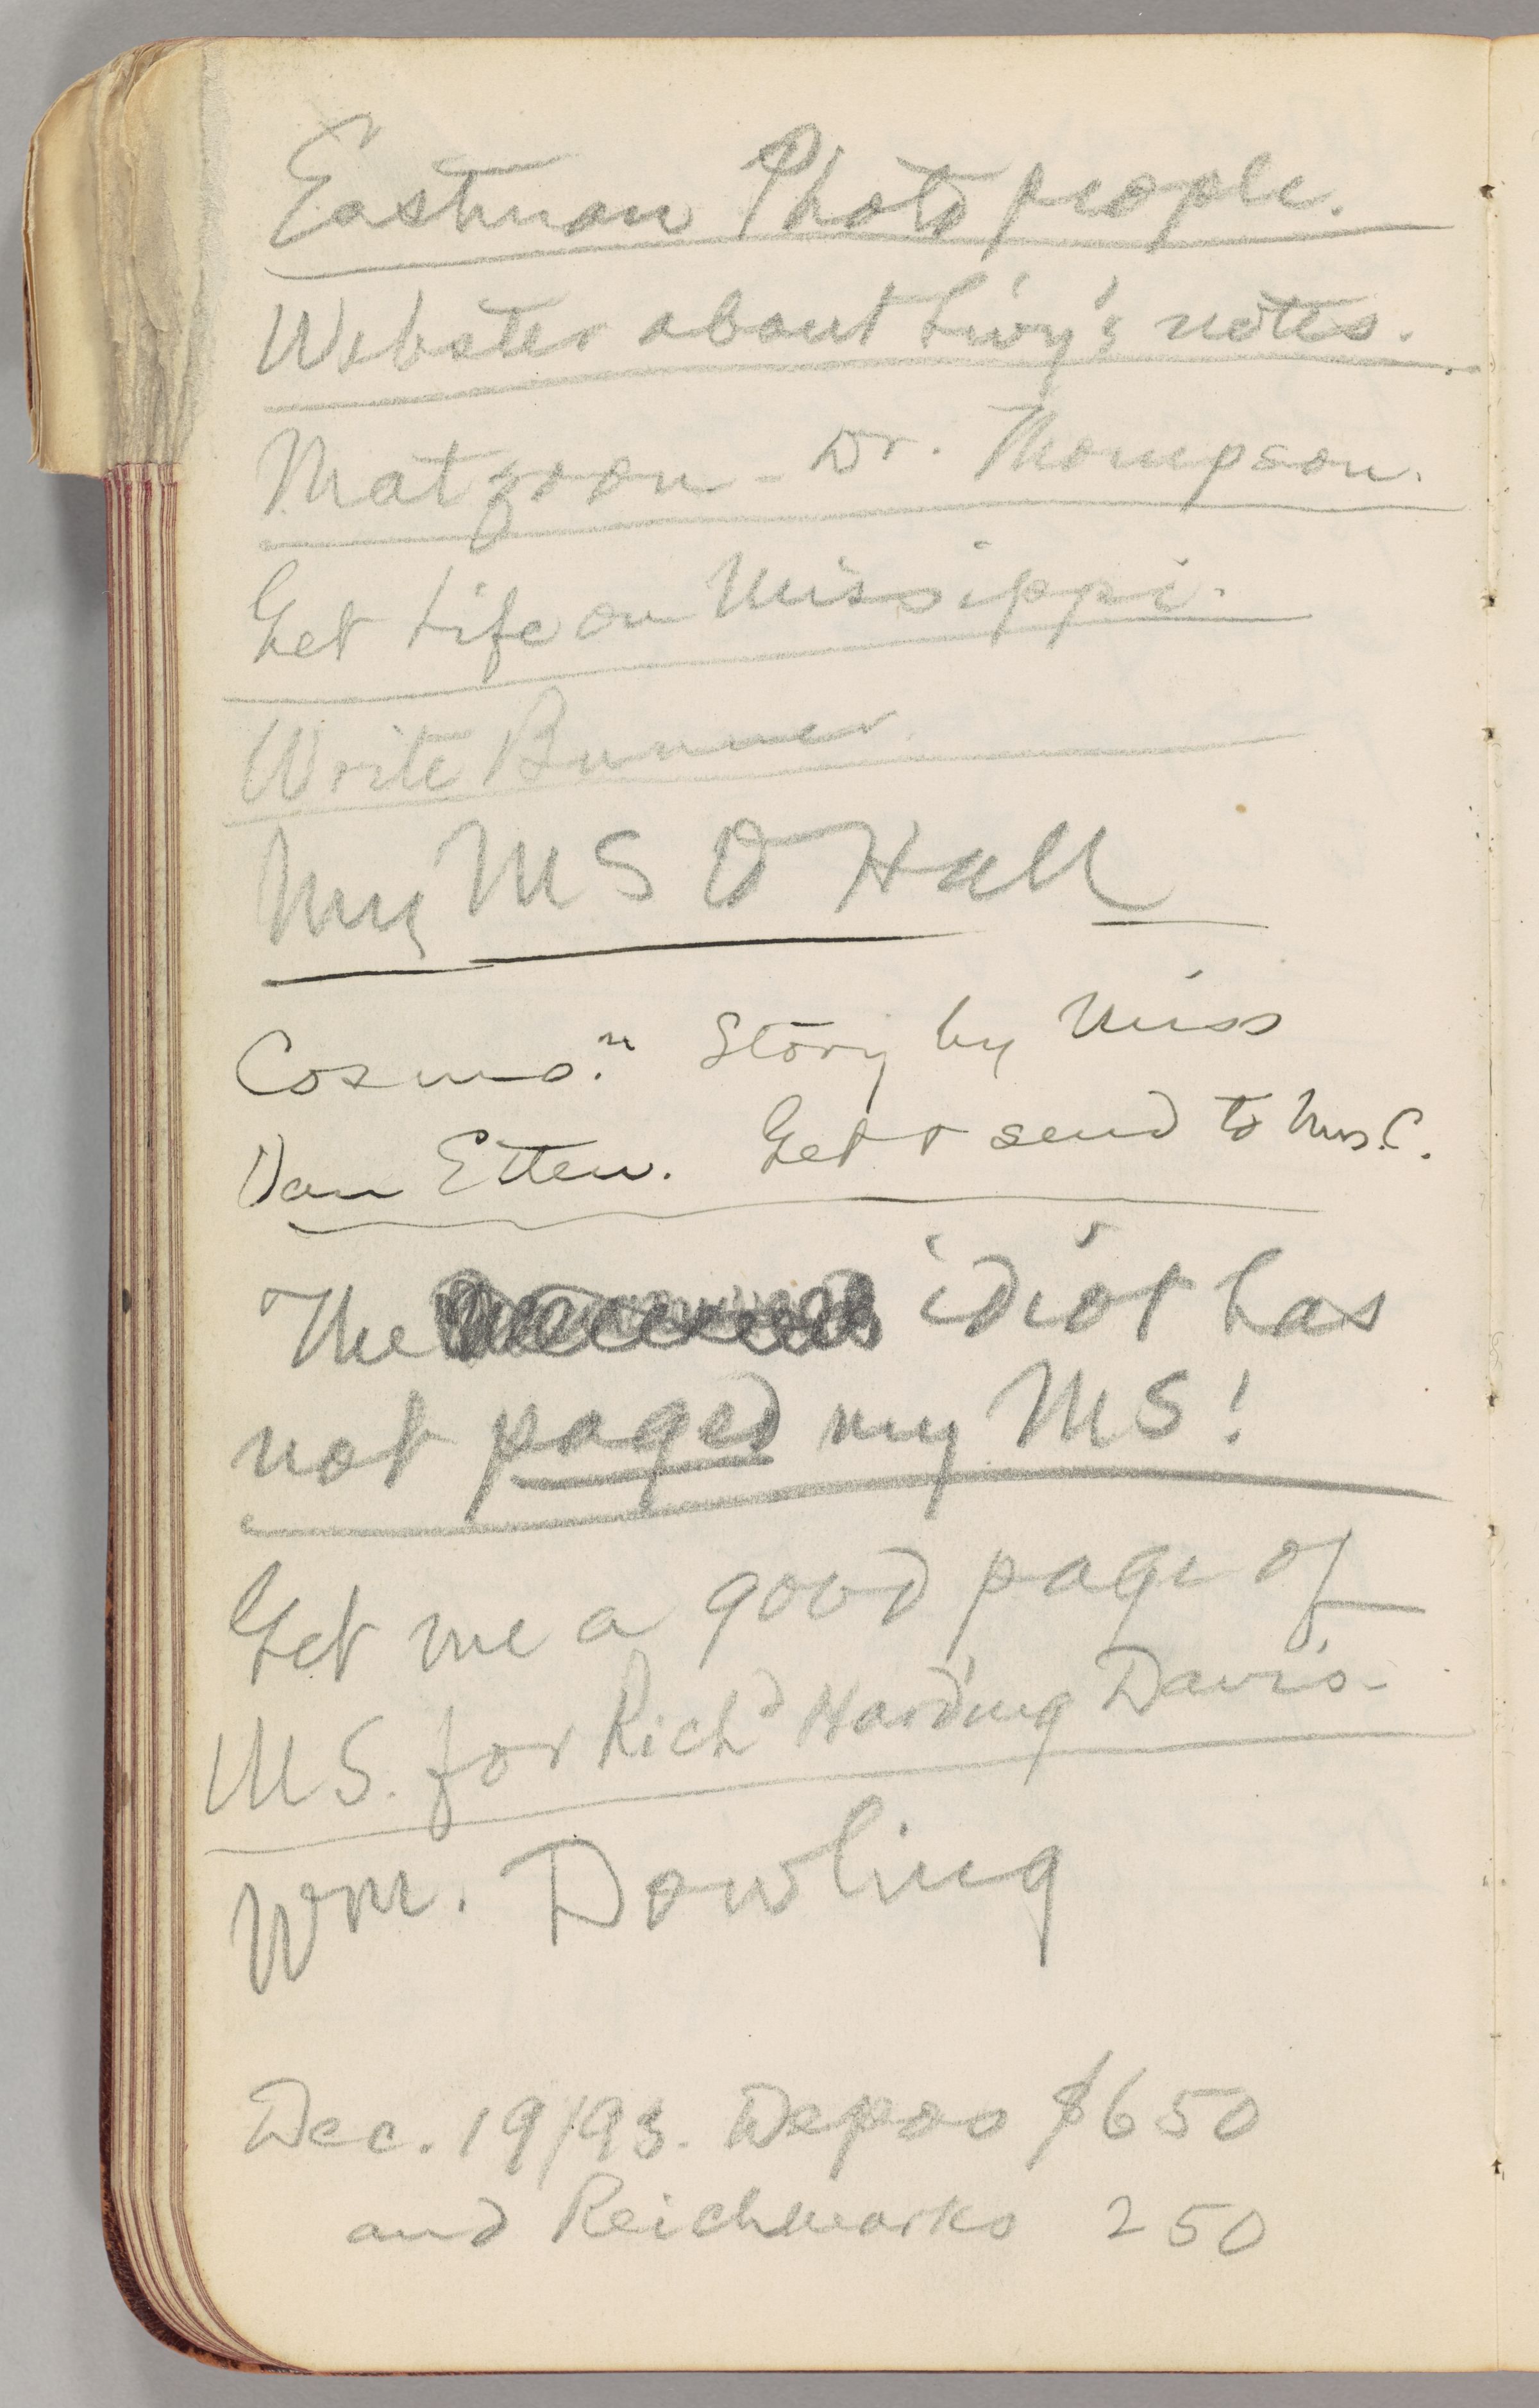 Eastman Photo people.
Webster about Livy's notes.
Matzoon - Dr. Thompson.
Get Life on Missippi.
Write Bunner.
My MS O Hall
Cosmo.n Story by Miss
Van Etten. Get & send to Mrs. C.
The idiot has
not paged my MS!
Get me a good page of
MS. for Richd Harding Davis-
Wm. Dowling
Dec. 19/93. Depos $650
and Reichmarks 250